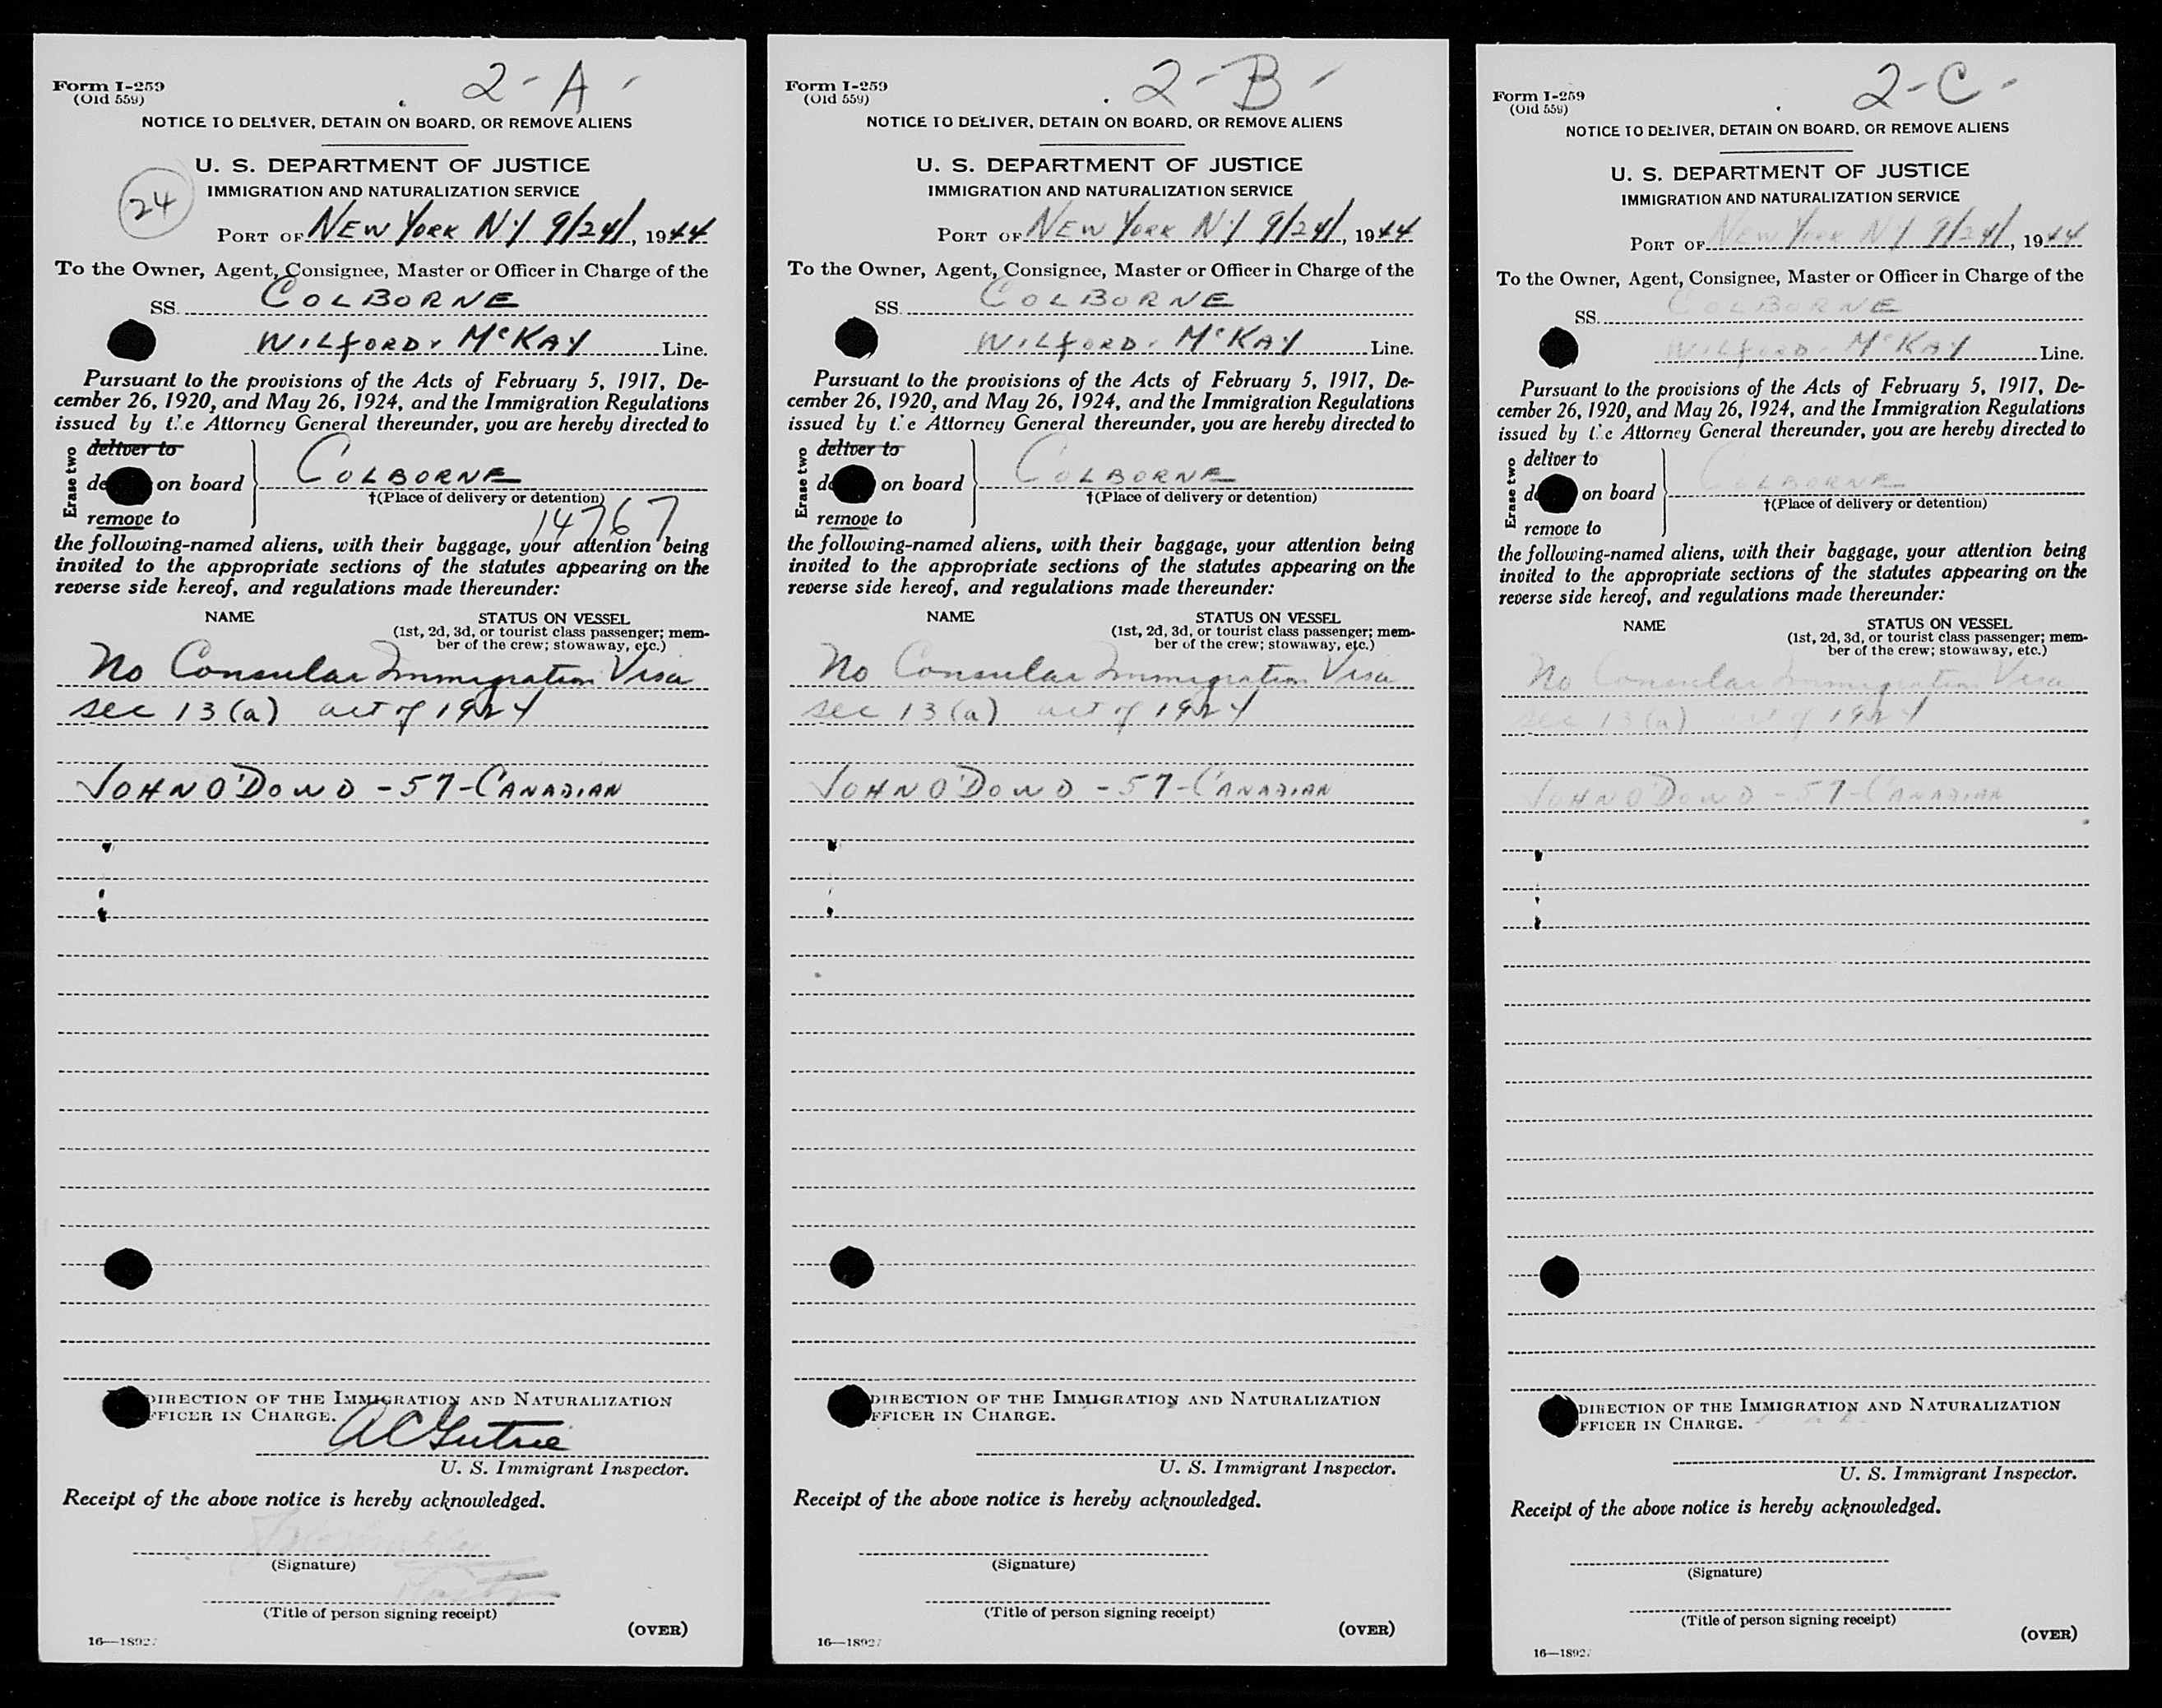 Form I-259
(Old 559)
2 - A -
NOTICE TO DELIVER, DETAIN ON BOARD, OR REMOVE ALIENS
U. S. DEPARTMENT OF JUSTICE
IMMIGRATION AND NATURALIZATION SERVICE
24
PORT OF NEW YORK NY 9/24/, 1944
To the Owner, Agent, Consignee, Master or Officer in Charge of the
SS. COLBORNE
WILFORD. McKAY Line.
Pursuant to the provisions of the Acts of February 5, 1917, De-
cember 26, 1920, and May 26, 1924, and the Immigration Regulations
issued by the Attorney General thereunder, you are hereby directed to
Erase two
deliver to
de on board COLBORNE
†(Place of delivery or detention)
remove to
14767
the following-named aliens, with their baggage, your attention being
invited to the appropriate sections of the statutes appearing on the
reverse side hereof, and regulations made thereunder:
NAME STATUS ON VESSEL
(1st, 2d, 3d, or tourist class passenger; mem-
ber of the crew; stowaway, etc.)
No Consular Immigration Visa
Sec 13 (a) act of 1924
JOHN O'DOWD - 57 - CANADIAN
DIRECTION OF THE IMMIGRATION AND NATURALIZATION
FFICER IN CHARGE.
U. S. Immigrant Inspector.
Receipt of the above notice is hereby acknowledged.
(Signature)
(Title of person signing receipt)
(OVER)
16—18927
Form I-259
(Old 559)
2 - B -
NOTICE TO DELIVER, DETAIN ON BOARD, OR REMOVE ALIENS
U. S. DEPARTMENT OF JUSTICE
IMMIGRATION AND NATURALIZATION SERVICE
PORT OF NEW YORK NY 9/24/, 1944
To the Owner, Agent, Consignee, Master or Officer in Charge of the
SS. COLBORNE
WILFORD. McKAY Line.
Pursuant to the provisions of the Acts of February 5, 1917, De-
cember 26, 1920, and May 26, 1924, and the Immigration Regulations
issued by the Attorney General thereunder, you are hereby directed to
Erase two
deliver to
de on board COLBORNE
†(Place of delivery or detention)
remove to
the following-named aliens, with their baggage, your attention being
invited to the appropriate sections of the statutes appearing on the
reverse side hereof, and regulations made thereunder:
NAME STATUS ON VESSEL
(1st, 2d, 3d, or tourist class passenger; mem-
ber of the crew; stowaway, etc.)
No Consular Immigration Visa
Sec 13 (a) act of 1924
JOHN O'DOWD - 57 - CANADIAN
DIRECTION OF THE IMMIGRATION AND NATURALIZATION
FFICER IN CHARGE.
U. S. Immigrant Inspector.
Receipt of the above notice is hereby acknowledged.
(Signature)
(Title of person signing receipt)
(OVER)
16—18927
Form I-259
(Old 559)
2 - C -
NOTICE TO DELIVER, DETAIN ON BOARD, OR REMOVE ALIENS
U. S. DEPARTMENT OF JUSTICE
IMMIGRATION AND NATURALIZATION SERVICE
PORT OF NEW YORK NY 9/24/, 1944
To the Owner, Agent, Consignee, Master or Officer in Charge of the
SS. COLBORNE
WILFORD. McKAY Line.
Pursuant to the provisions of the Acts of February 5, 1917, De-
cember 26, 1920, and May 26, 1924, and the Immigration Regulations
issued by the Attorney General thereunder, you are hereby directed to
Erase two
deliver to
de on board COLBORNE
†(Place of delivery or detention)
remove to
the following-named aliens, with their baggage, your attention being
invited to the appropriate sections of the statutes appearing on the
reverse side hereof, and regulations made thereunder:
NAME STATUS ON VESSEL
(1st, 2d, 3d, or tourist class passenger; mem-
ber of the crew; stowaway, etc.)
No Consular Immigration Visa
Sec 13 (a) act of 1924
JOHN O'DOWD - 57 - CANADIAN
DIRECTION OF THE IMMIGRATION AND NATURALIZATION
FFICER IN CHARGE.
U. S. Immigrant Inspector.
Receipt of the above notice is hereby acknowledged.
(Signature)
(Title of person signing receipt)
(OVER)
16—1892